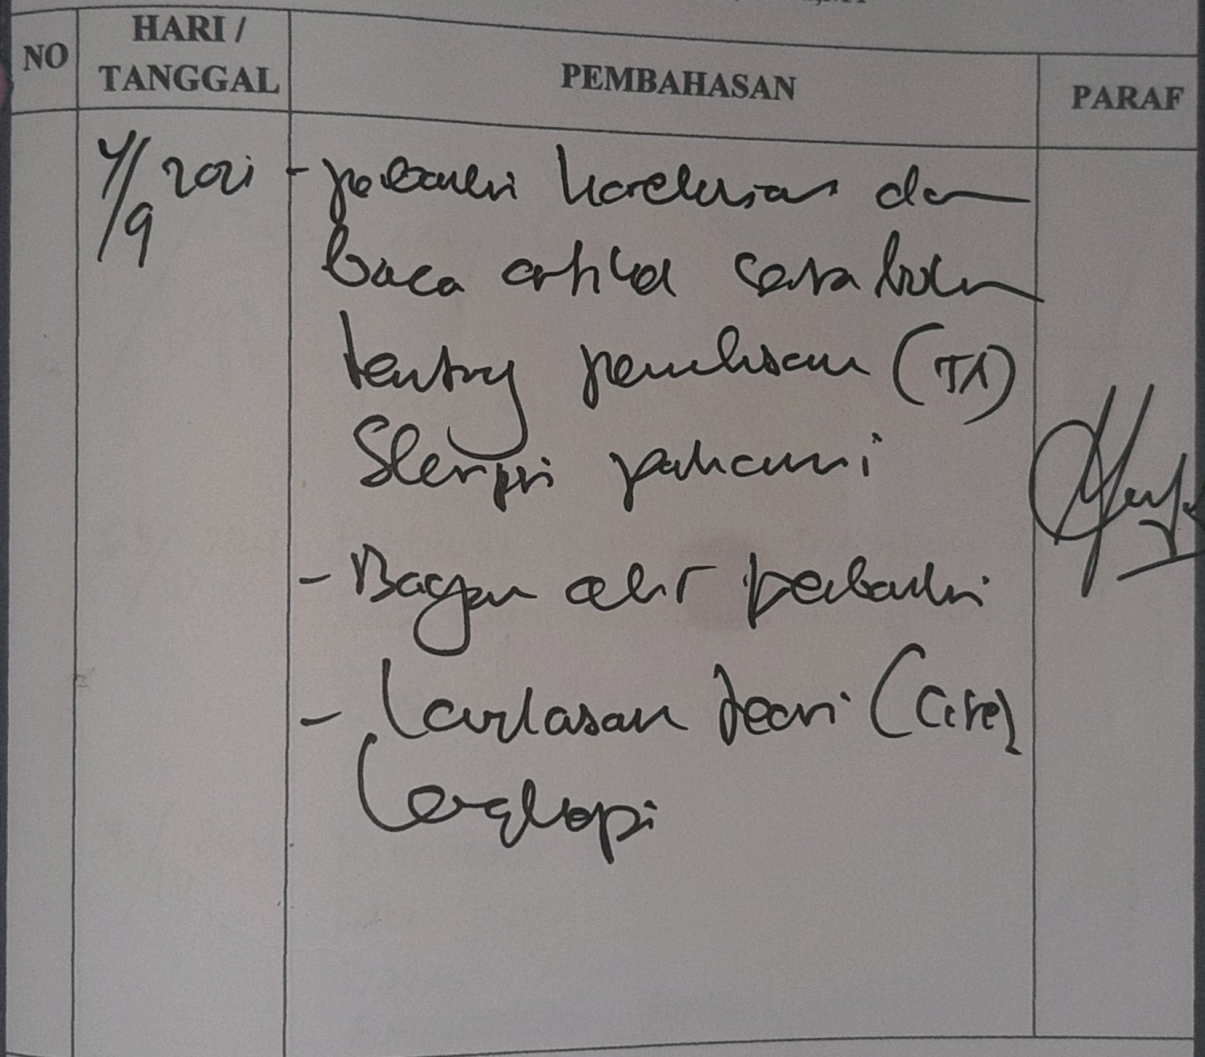 NO
HARI /
TANGGAL
PEMBAHASAN
PARAF
4/9 2021
- perbaiki dan
baca artikel serta buku
tentang penulisan (TA)
Skripsi pahami
- Bagan alir perbaiki
- Landasan teori (
Lengkapi